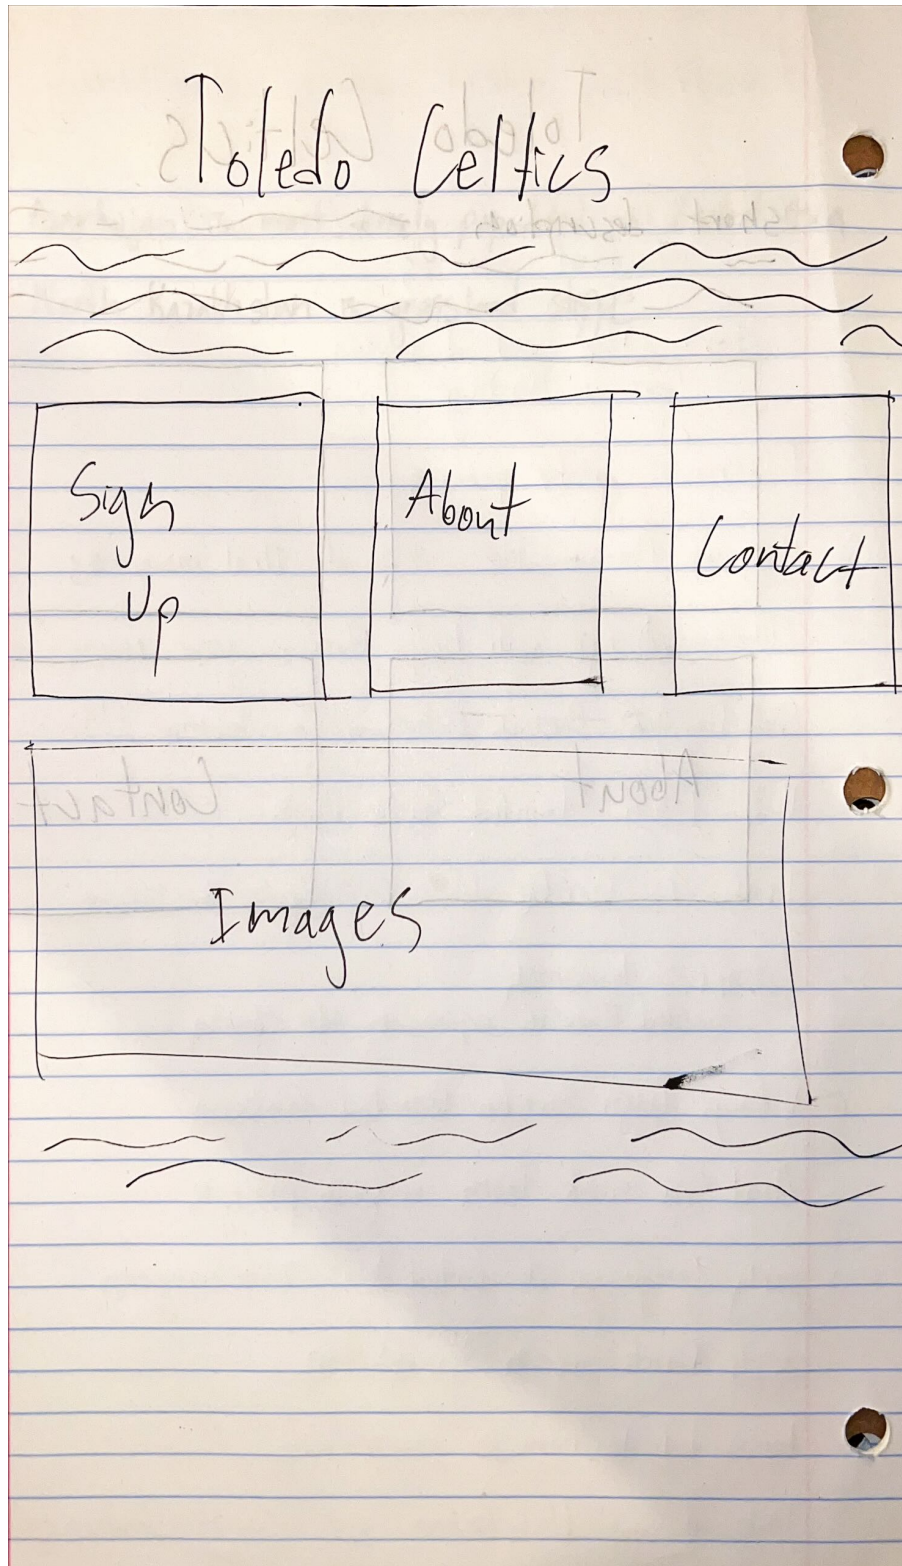 Toledo Celtics
Sign
Up
About
Contact
Images